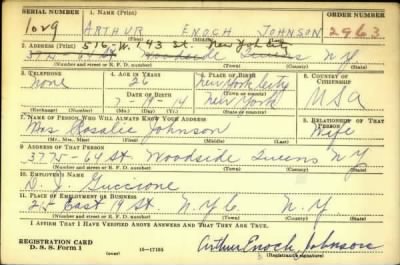 SERIAL NUMBER 1. NAME (Print) ORDER NUMBER
1049 ARTHUR ENOCH JOHNSON 2963
(First) (Middle) (Last)
2. ADDRESS (Print) 516 W. 143 St. New York City
3775 64 St Woodside Queens N.Y.
(Number and street or R. F. D. number) (Town) (County) (State)
3. TELEPHONE 4. AGE IN YEARS 5. PLACE OF BIRTH 6. COUNTRY OF CITIZENSHIP
None 26 New York City
DATE OF BIRTH (Town or county)
7-19-14 New York USA
(Exchange) (Number) (Mo.) (Day) (Yr.) (State or country)
7. NAME OF PERSON WHO WILL ALWAYS KNOW YOUR ADDRESS 8. RELATIONSHIP OF THAT PERSON
Mrs Rosalie Johnson Wife
(Mr., Mrs., Miss) (First) (Middle) (Last)
9. ADDRESS OF THAT PERSON
3775-64 St Woodside Queens N.Y.
(Number and street or R. F. D. number) (Town) (County) (State)
10. EMPLOYER'S NAME
D. J. Guccione
11. PLACE OF EMPLOYMENT OR BUSINESS
215 East 19 St N.Y.C N.Y.
(Number and street or R. F. D. number) (Town) (County) (State)
I AFFIRM THAT I HAVE VERIFIED ABOVE ANSWERS AND THAT THEY ARE TRUE.
REGISTRATION CARD
D. S. S. Form 1 16-17105 Arthur Enoch Johnson
(over) (Registrant's signature)